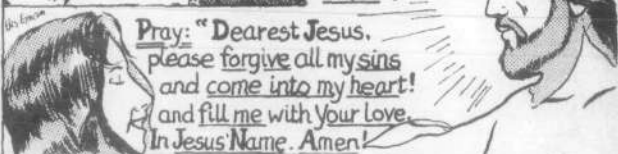 Pray: "Dearest Jesus,
please forgive all my sins
and come into my heart!
and fill me with Your Love.
In Jesus' Name. Amen!